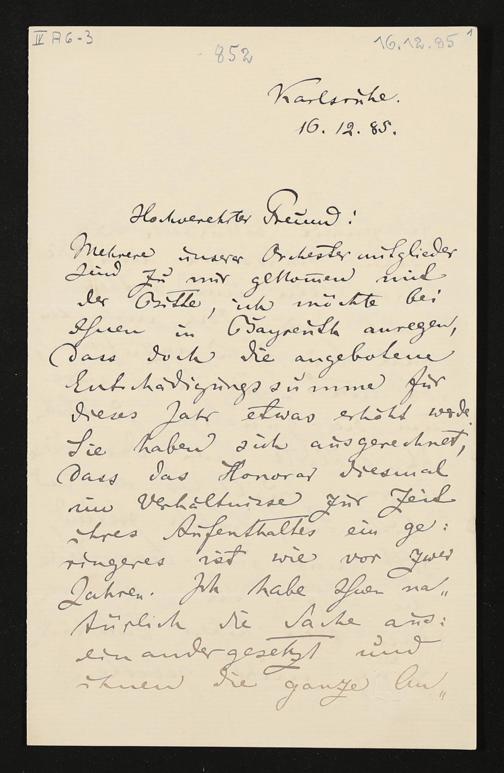 IV A 6-3
852
16.12.85
1
Karlsruhe.
16. 12. 85.
Hochverehrter Freund!
Mehrere unserer Orchestermitglieder
sind zu mir gekommen mit
der Bitte, ich möchte bei
Ihnen in Bayreuth anregen,
dass doch die angebotene
Entschädigungssumme für
dieses Jahr etwas erhöht werde.
Sie haben sich ausgerechnet,
dass das Honorar diesmal
im Verhältnisse zur Zeit
ihres Aufenthaltes ein ge:
ringeres ist wie vor zwei
Jahren. Ich habe Ihnen na„
türlich die Sache aus:
einandergesetzt und
ihnen die ganze An„